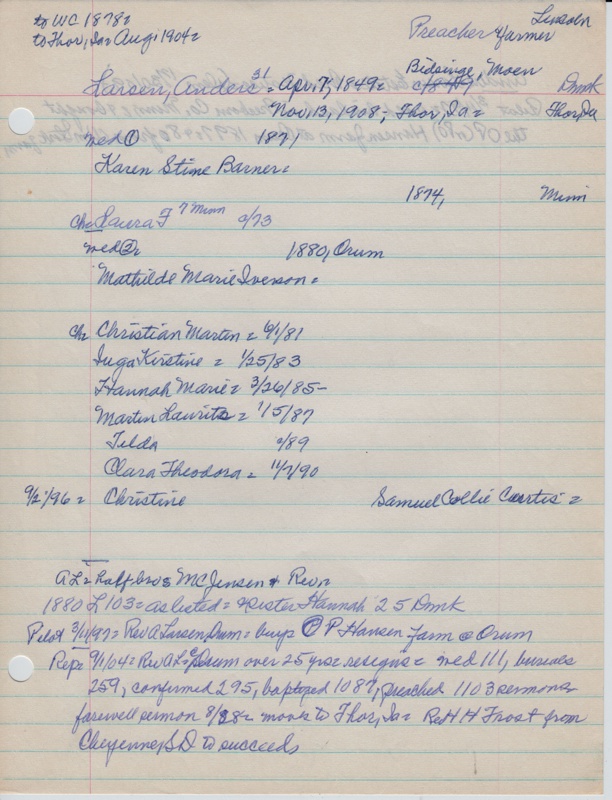 to WC 1878=
to Thor, Ia= Aug, 1904=
Preacher Lincoln
Farmer
Bidsinge, Moen
Larsen, Anders = Apr, 7, 1849= c/1849 Dmk
31
Nov, 13, 1908, Thor, Ia= Thor, Ia
med ① 1871
Karen Stine Barner=
1874, Minn
Ch= Laura F 7 Minn c/73
med ②= 1880, Orum
Mathilde Marie Iverson=
Ch= Christian Martin = 6/1/81
Inga Kirstine = 1/25/83
Hannah Marie= 3/26/85-
Martin Laurits = 1/5/87
Tilda c/89
Clara Theodora = 11/7/90
9/2/96 = Christine Samuel Collie Curtis =
AL= half bros MC Jensen + Rev
1880 L103= as listed = sister Hannah 25 Dmk
Pilot 3/11/97= Rev A Larsen, Orum = buys P Hansen farm @ Orum
Rep= 9/1/04= Rev AL= @ Orum over 25 yrs= resigns = wed 111, buries
259, confirmed 295, baptized 1087, preached 1103 sermons
farewell sermon 8/28= moves to Thor, Ia= Rev H H Frost from
Cheyenne, SD to succeeds